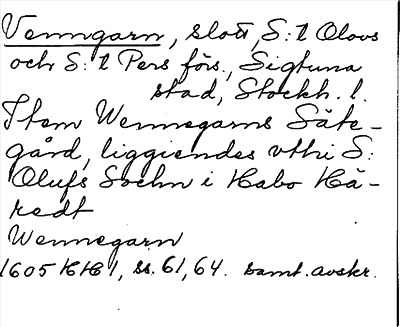 Venngarn, slott, S:t Olovs
och S:t Pers förs., Sigtuna
stad, Stockh. l.
Item Wennegarns Säte-
gård, liggiendes vthi S:
Olufs Sochn i Habo Hä-
redt
Wennegarn
1605 HH 1, ss. 61, 64. samt. avskr.